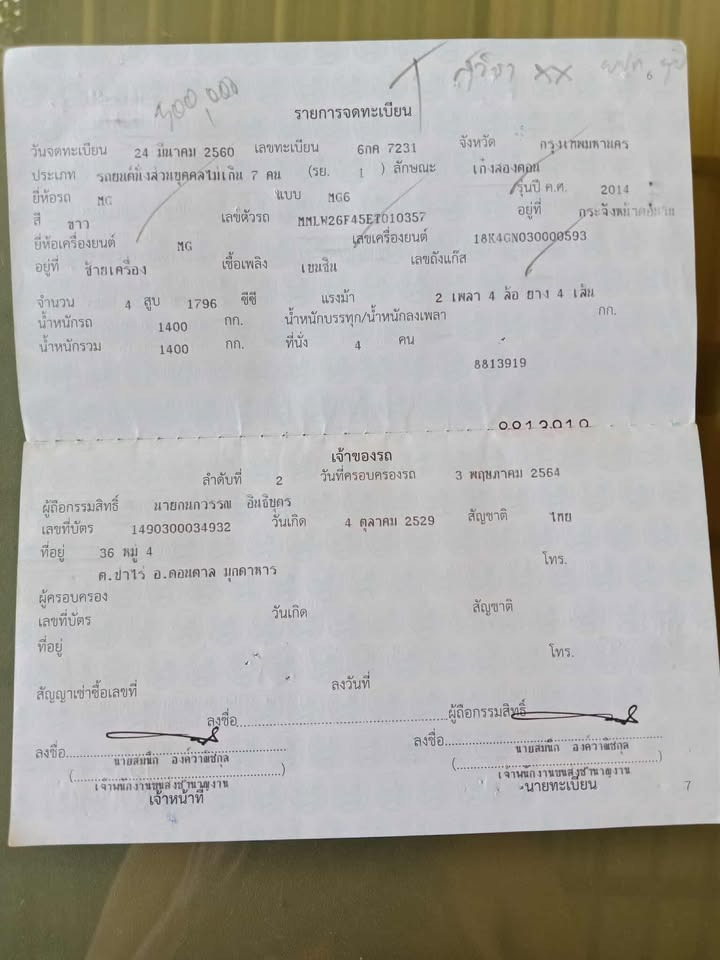 500,000
รายการจดทะเบียน
วันจดทะเบียน 24 มีนาคม 2560 เลขทะเบียน 6กค 7231 จังหวัด กรุงเทพมหานคร
ประเภท รถยนต์นั่งส่วนบุคคลไม่เกิน 7 คน (รย. 1 ) ลักษณะ เก๋งสองตอน
ยี่ห้อรถ MG แบบ MG6 รุ่นปี ค.ศ. 2014
สี ขาว เลขตัวรถ MMLW26F45ET010357 อยู่ที่ กระจังหน้าด้านใน
ยี่ห้อเครื่องยนต์ MG เลขเครื่องยนต์ 18K4GN030000593
อยู่ที่ ซ้ายเครื่อง เชื้อเพลิง เบนซิน เลขถังแก๊ส
จำนวน 4 สูบ 1796 ซีซี แรงม้า 2 เพลา 4 ล้อ ยาง 4 เส้น
น้ำหนักรถ 1400 กก. น้ำหนักบรรทุก/น้ำหนักลงเพลา กก.
น้ำหนักรวม 1400 กก. ที่นั่ง 4 คน
8813919
เจ้าของรถ
ลำดับที่ 2 วันที่ครอบครองรถ 3 พฤษภาคม 2564
ผู้ถือกรรมสิทธิ์ นายกนกวรรณ อินธิบุตร
เลขที่บัตร 1490300034932 วันเกิด 4 ตุลาคม 2529 สัญชาติ ไทย
ที่อยู่ 36 หมู่ 4 โทร.
ต.ป่าไร่ อ.ดอนตาล มุกดาหาร
ผู้ครอบครอง
เลขที่บัตร วันเกิด สัญชาติ
ที่อยู่ โทร.
สัญญาเช่าซื้อเลขที่ ลงวันที่
ลงชื่อ ผู้ถือกรรมสิทธิ์
ลงชื่อ ลงชื่อ
นายสมนึก องค์วาณิชกุล นายสมนึก องค์วาณิชกุล
เจ้าพนักงานขนส่งชำนาญงาน เจ้าพนักงานขนส่งชำนาญงาน
เจ้าหน้าที่ นายทะเบียน 7